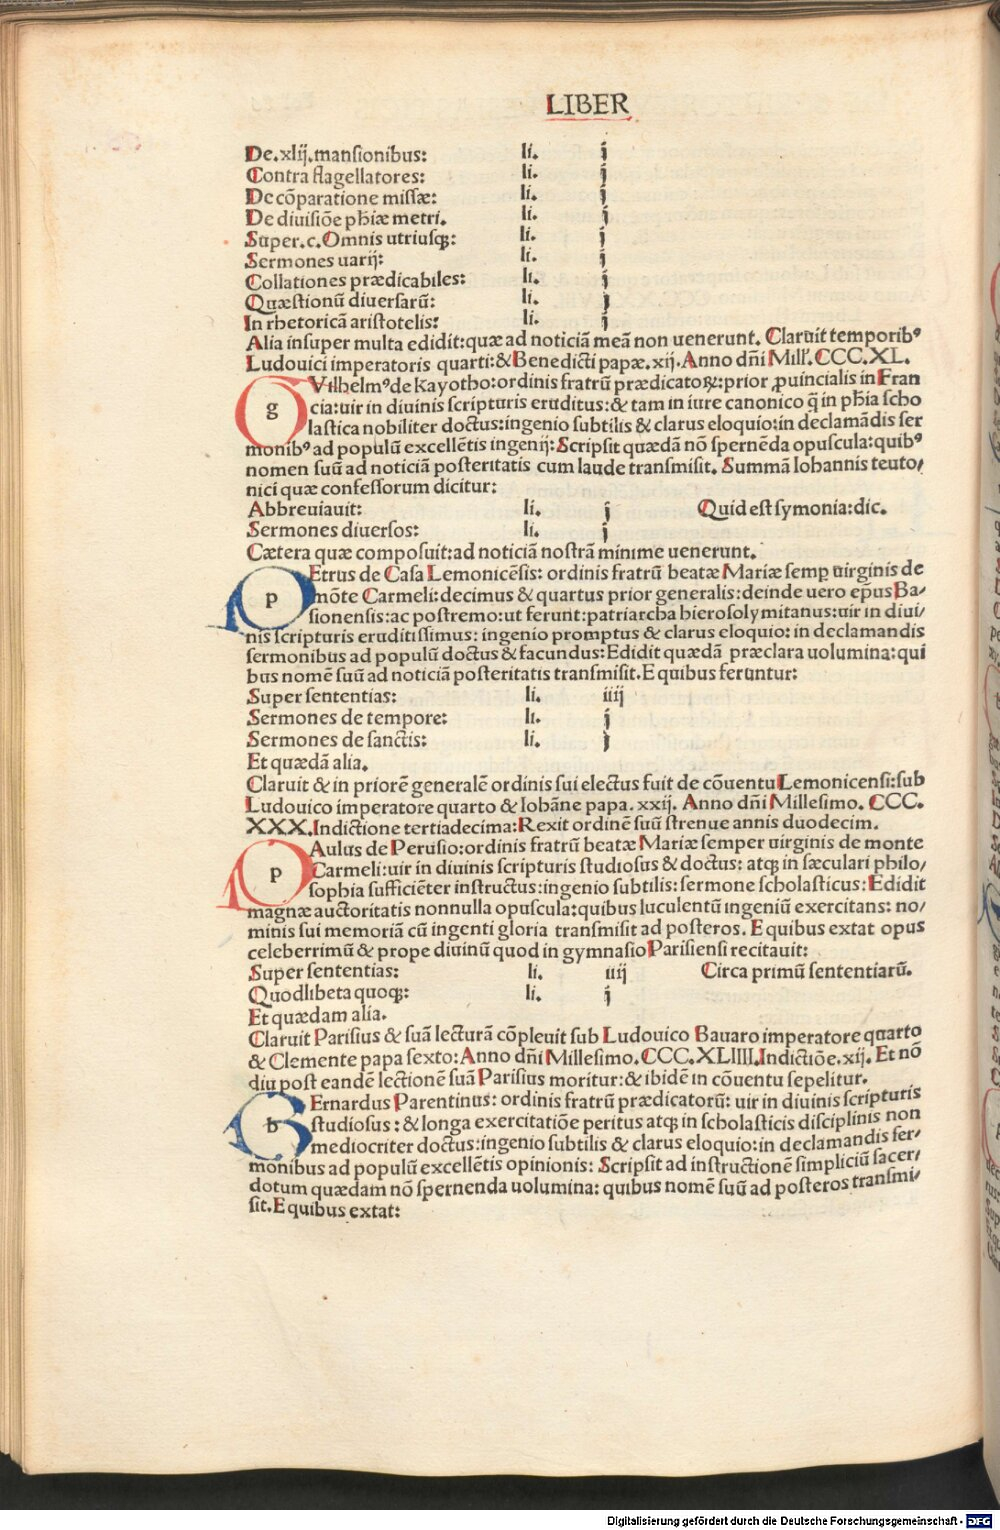 LIBER
De.xlij.mansionibus: li. j
Contra flagellatores: li. j
De cõparatione missæ: li. j
De diuisiõe pħiæ metri. li. j
Super.c.Omnis utriusqꝫ: li. j
Sermones uarij: li. j
Collationes prædicabiles: li. j
Quæstionũ diuersarũ: li. j
In rhetoricã aristotelis: li. j
Alia insuper multa edidit:quæ ad noticiã meã non uenerunt. Claruit temporibꝰ
Ludouici imperatoris quarti:& Benedicti papæ.xij.Anno dñi Mill'.CCC.XL.
g Vilhelmꝰ de Kayotho:ordinis fratrũ prædicatoꝝ:prior ꝓuincialis in Fran
cia:uir in diuinis scripturis eruditus:& tam in iure canonico q̃ in pħia scho
lastica nobiliter doctus:ingenio subtilis & clarus eloquio:in declamãdis ser
monibꝰ ad populũ excellẽtis ingenij:Scripsit quædã nõ spernẽda opuscula:quibꝰ
nomen suũ ad noticiã posteritatis cum laude transmisit. Summã Iohannis teuto/
nici quæ confessorum dicitur:
Abbreuiauit: li. j Quid est symonia:dic.
Sermones diuersos: li. j
Cætera quæ composuit:ad noticiã nostrã minime uenerunt.
p Etrus de Casa Lemonicẽsis: ordinis fratrũ beatæ Mariæ semꝑ uirginis de
mõte Carmeli:decimus & quartus prior generalis:deinde uero ep̃us Ba/
sionensis:ac postremo:ut ferunt:patriarcha hierosolymitanus:uir in diui/
nis scripturis eruditissimus: ingenio promptus & clarus eloquio: in declamandis
sermonibus ad populũ doctus & facundus:Edidit quædã præclara uolumina:qui
bus nomẽ suũ ad noticiã posteritatis transmisit.E quibus feruntur:
Super sententias: li. iiij
Sermones de tempore: li. j
Sermones de sanctis: li. j
Et quædã alia.
Claruit & in priorẽ generalẽ ordinis sui electus fuit de cõuentu Lemonicensi:sub
Ludouico imperatore quarto & Iohãne papa.xxij. Anno dñi Millesimo. CCC.
XXX.Indictione tertiadecima:Rexit ordinẽ suũ strenue annis duodecim.
p Aulus de Perusio:ordinis fratrũ beatæ Mariæ semper uirginis de monte
Carmeli:uir in diuinis scripturis studiosus & doctus: atqꝫ in sæculari philo/
sophia sufficiẽter instructus:ingenio subtilis:sermone scholasticus:Edidit
magnæ auctoritatis nonnulla opuscula:quibus luculentũ ingeniũ exercitans: no/
minis sui memoriã cũ ingenti gloria transmisit ad posteros. E quibus extat opus
celeberrimũ & prope diuinũ quod in gymnasio Parisiensi recitauit:
Super sententias: li. iiij Circa primũ sententiarũ.
Quodlibeta quoqꝫ: li. j
Et quædam alia.
Claruit Parisius & suã lecturã cõpleuit sub Ludouico Bauaro imperatore quarto
& Clemente papa sexto:Anno dñi Millesimo.CCC.XLIIII.Indictiõe.xij. Et nõ
diu post eandẽ lectionẽ suã Parisius moritur:& ibidẽ in cõuentu sepelitur.
b Ernardus Parentinus: ordinis fratrũ prædicatorũ: uir in diuinis scripturis
studiosus: & longa exercitatiõe peritus atqꝫ in scholasticis disciplinis non
mediocriter doctus:ingenio subtilis & clarus eloquio:in declamandis ser/
monibus ad populũ excellẽtis opinionis: Scripsit ad instructionẽ simpliciũ sacer/
dotum quædam nõ spernenda uolumina: quibus nomẽ suũ ad posteros transmi/
sit.E quibus extat:
Digitalisierung gefördert durch die Deutsche Forschungsgemeinschaft - DFG